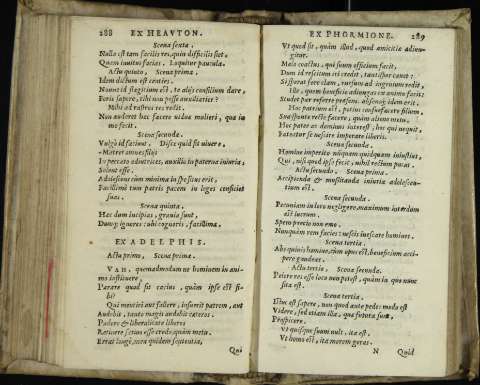 288 EX HEAVTON.
Scena sexta.
Nulla est tam facilis res, quin difficilis siet,
Quam inuitus facias. Loquitur paucula.
Actu quinto, Scena prima.
Idem dictum est centies.
Nonne id flagitium est, te aliis consilium dare,
Foris sapere, tibi non posse auxiliarier?
Mihi ad rastros res redit.
Non auderet hæc facere viduæ mulieri, quæ in
me fecit.
Scena secunda.
Vulgò id faciunt. Disce quid sit viuere.
Matres omnes filiis
In peccato adiutrices, auxilio in paterna iniuria,
Solent esse.
Adolescens cùm minima in spe situs erit,
Facillimè tum patris pacem in leges conficiet
suas.
Scena quinta.
Hæc dum incipias, grauia sunt,
Dumq; ignores: vbi cognoris, facillima.
EX ADELPHIS.
Actu primo, Scena prima.
VAH, quemadmodum ne hominem in ani-
mo instituere,
Parare quod sit carius, quàm ipse est si-
bi?
Qui mentiri aut fallere, insuerit patrem, aut
Audebit, tanto magis audebit cæteros.
Pudore & liberalitate liberos
Retinere satius esse credo, quàm metu.
Errat longè, mea quidem sententia,
Qui
EX PHORMIONE. 289
Vt quod sit, quàm illud, quod amicitiâ adiun-
gitur.
Malo coactus, qui suum officium facit,
Dum id rescitum iri credit, tantisper cauet:
Si sperat fore clam, rursum ad ingenium redit,
Ille, quem beneficio adiungas ex animo facit:
Studet par referre præsens, absensq; idem erit.
Hoc patrium est, potius consuefacere filium
Sua sponte rectè facere, quàm alieno metu.
Hoc pater ac dominus interest, hoc qui nequit,
Fateatur se nescire imperare liberis.
Scena secunda.
Homine imperito nusquam quidquam iniustius,
Qui, nisi quod ipse fecit, nihil rectum putat.
Actu secundo, Scena prima.
Accipienda & mussitanda iniuria adolescen-
tium est.
Scena secunda.
Pecuniam in loco negligere, maximum interdum
est lucrum.
Spem precio non emo.
Nunquam rem facies: nescis inescare homines.
Scena tertia.
Abs quiuis homine, cùm opus est, beneficium acci-
pere gaudeas.
Actu tertio, Scena secunda.
Peiore res esse loco non potest, quàm in quo nunc
sita est.
Scena tertia.
Istuc est sapere, non quod ante pedes modò est
Videre, sed etiam illa, quæ futura sunt,
Prospicere.
Vt quisque suum vult, ita est.
Vt homo est, ita morem geras.
N Quid